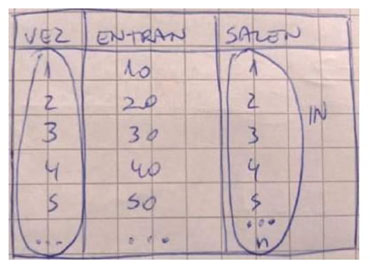 VEZ ENTRAN SALEN
1 10 1
2 20 2
3 30 3
4 40 4
5 50 5
... ... ...
n
IN